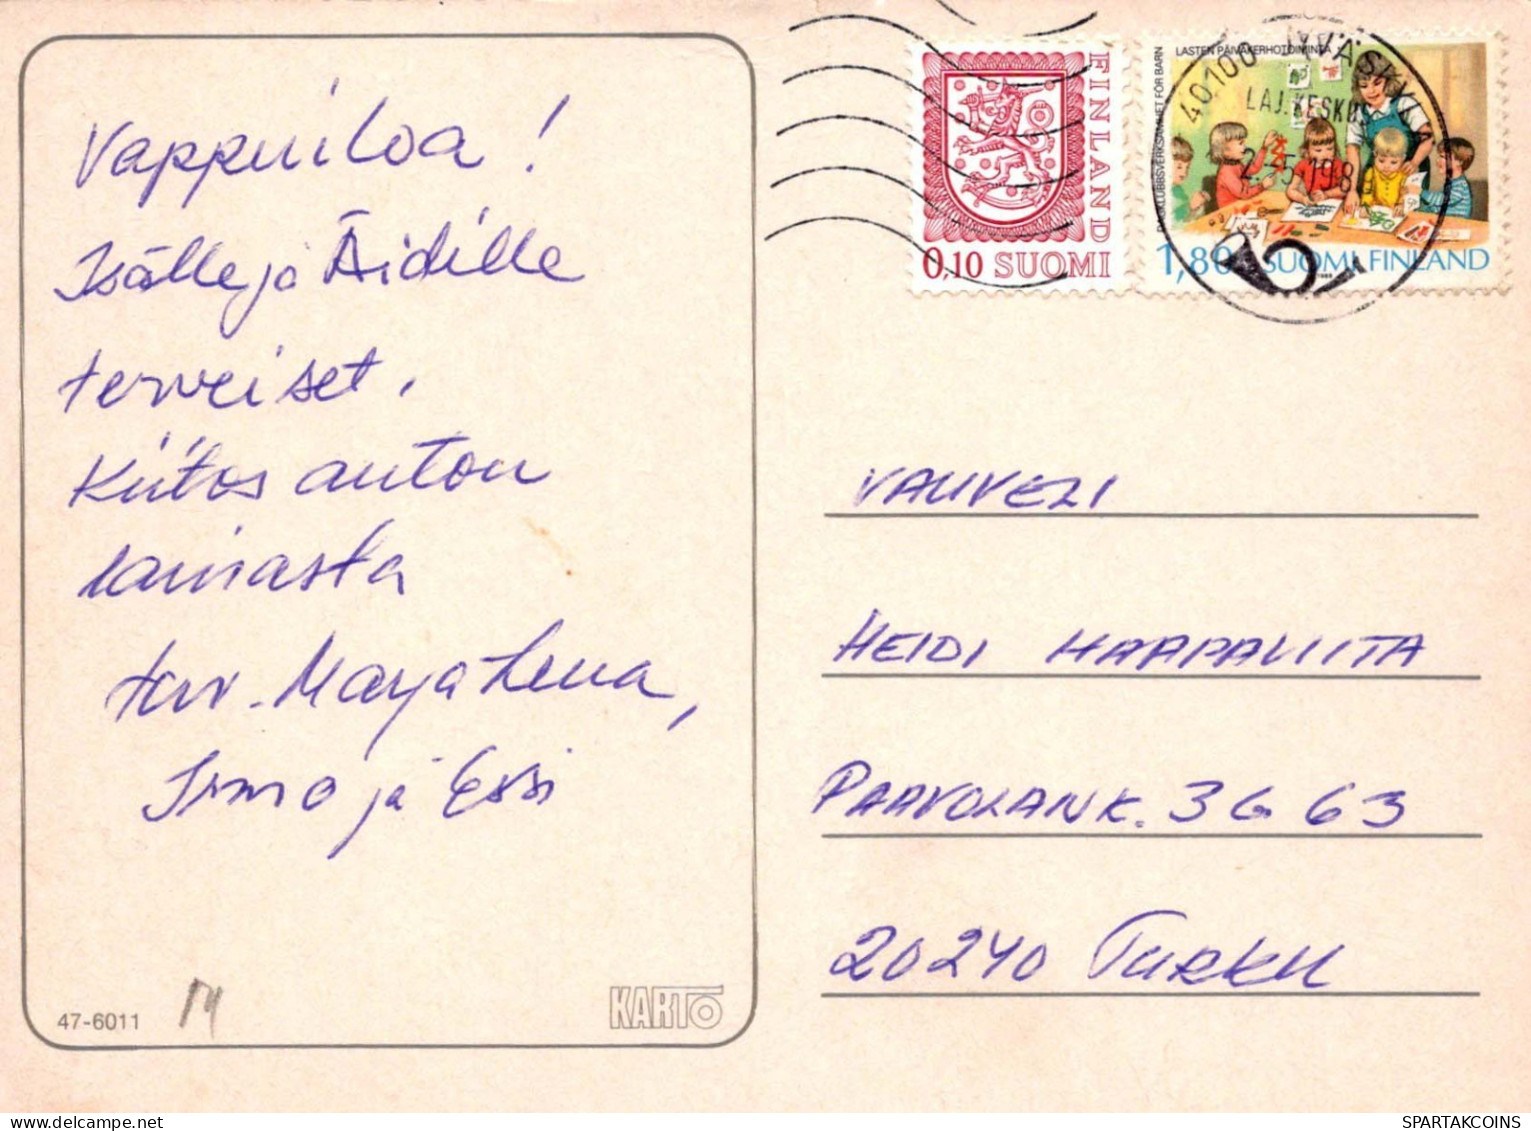 Vappuiloa!
Isälle ja Äidille
terveiset.
Kiitos auton
lainasta
terv. Marja-Leena,
Irmo ja Essi
47-6011
KARTO
FINLAND
0,10 SUOMI
LASTEN PÄIVÄKERHOTOIMINTA
1,80 SUOMI FINLAND
40100 JYVÄSKYLÄ
LAJ.KESKUS
VAUVELI
HEIDI HAAPAVIITA
PAAVOLANK. 3 G 63
20240 TURKU
SPARTAKCOINS